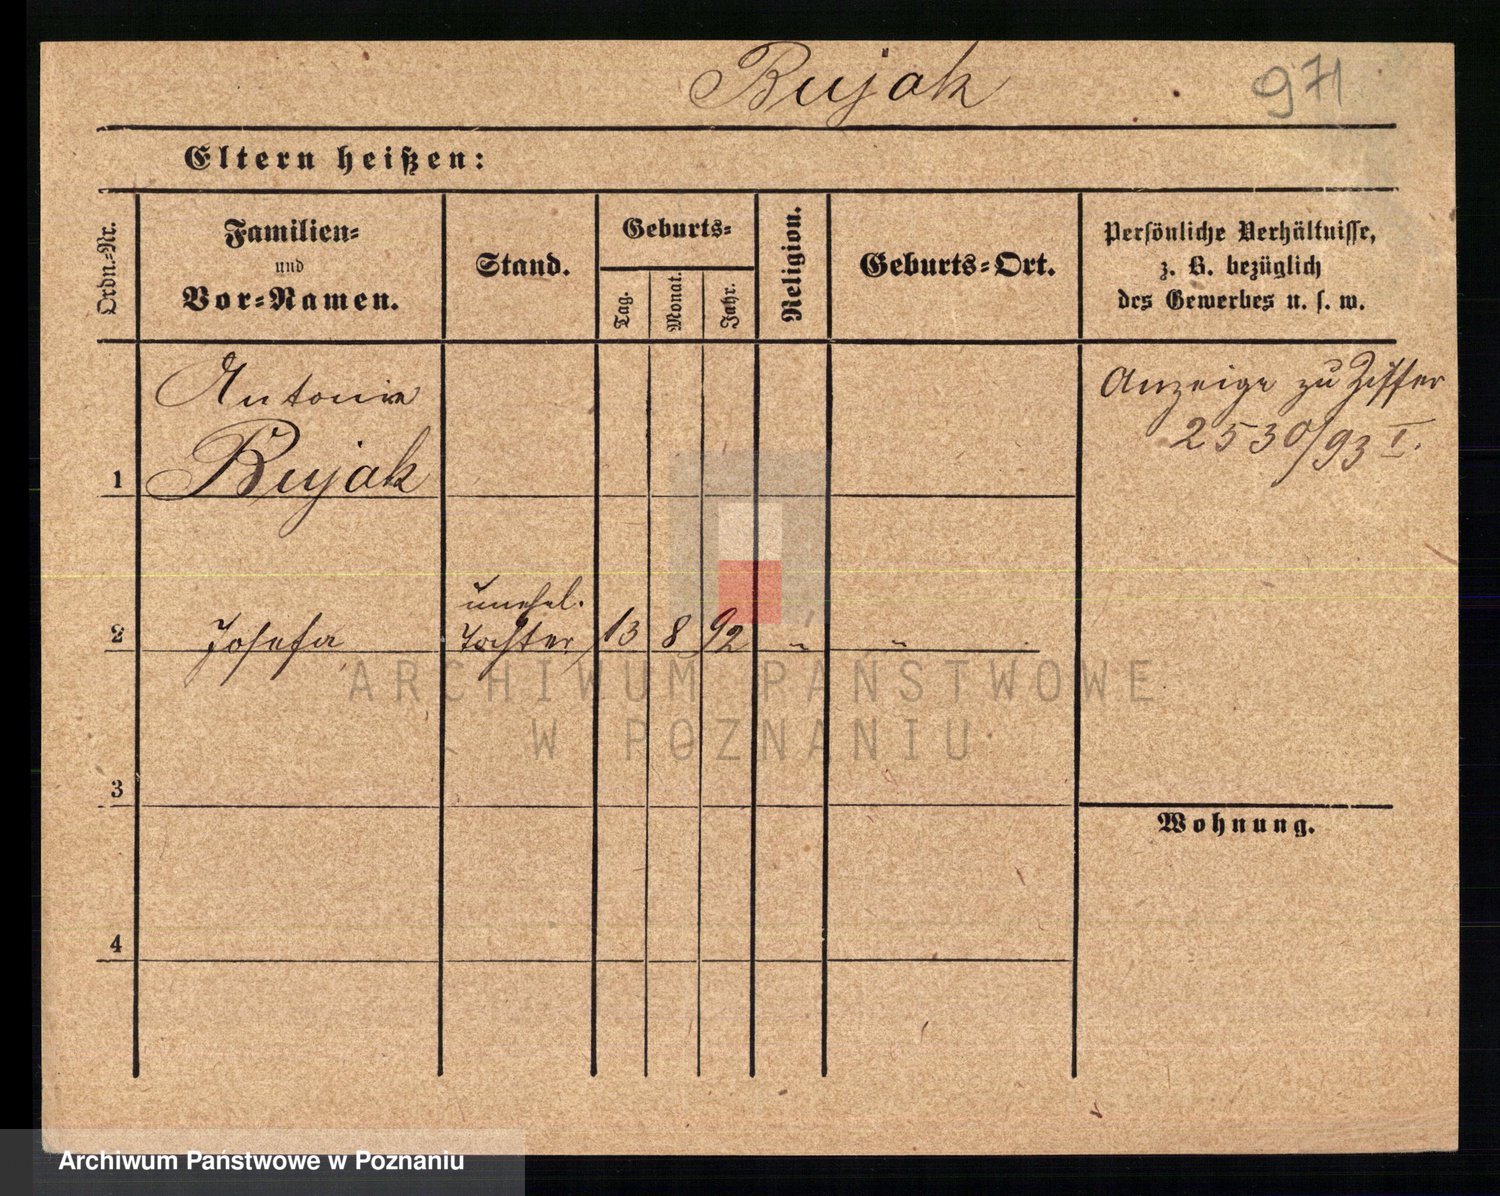 Bujak
971
Eltern heißen:
Ordn.-Nr.
Familien-
und
Vor-Namen.
Stand.
Geburts-
Tag.
Monat.
Jahr.
Religion.
Geburts-Ort.
Persönliche Verhältnisse,
z. B. bezüglich
des Gewerbes u. s. w.
Antonie
Bujak
1
Anzeige zu Ziffer
2530/93 I.
unehel.
2 Josefa Tochter 13 8 92 " "
ARCHIWUM PAŃSTWOWE
W POZNANIU
3
Wohnung.
4
Archiwum Państwowe w Poznaniu